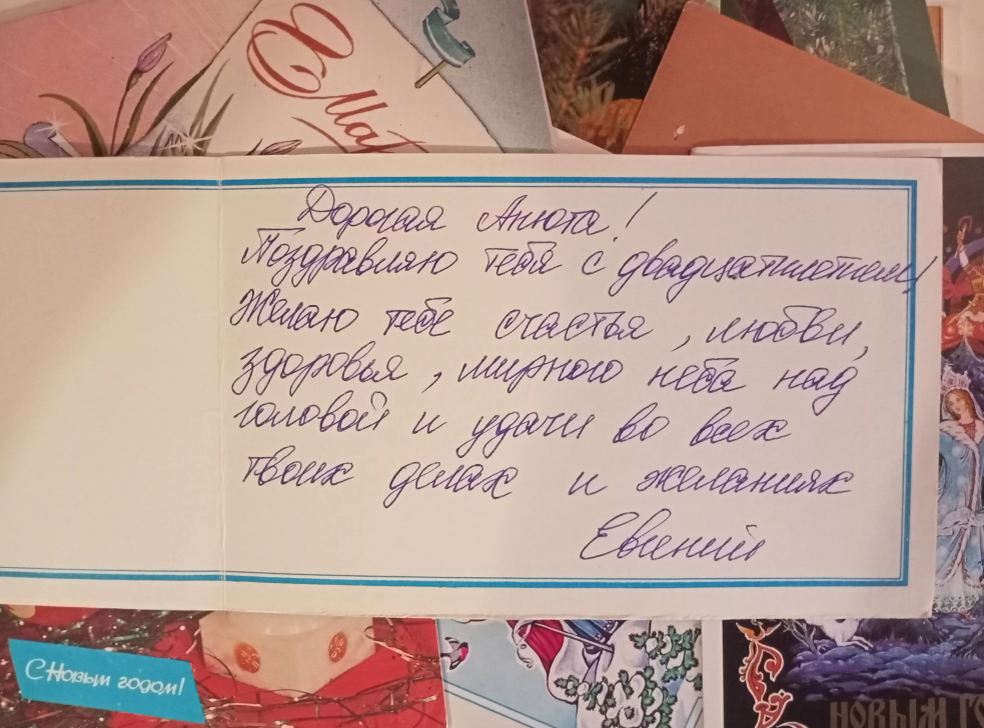 8 Мар
Дорогая Анюта!
Поздравляю тебя с двадцатилетием!
Желаю тебе счастья, любви,
здоровья, мирного неба над
головой и удачи во всех
твоих делах и желаниях
Евгений
С Новым годом!
НОВЫМ ГО